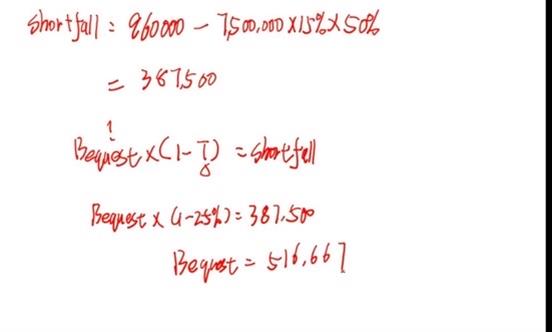 Shortfall = 960000 - 7,500,000 × 15% × 50%
= 387,500
?
Bequest × (1 - T) = Shortfall
Bequest × (1-25%) = 387,500
Bequest = 516,667